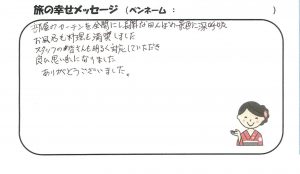 旅の幸せメッセージ (ペンネーム : )
部屋のカーテンを全開にし綺麗な田んぼの景色に深呼吸
お風呂も料理も満喫しました
スタッフの皆さんも明るく対応していただき
良い思い出になりました
ありがとうございました。